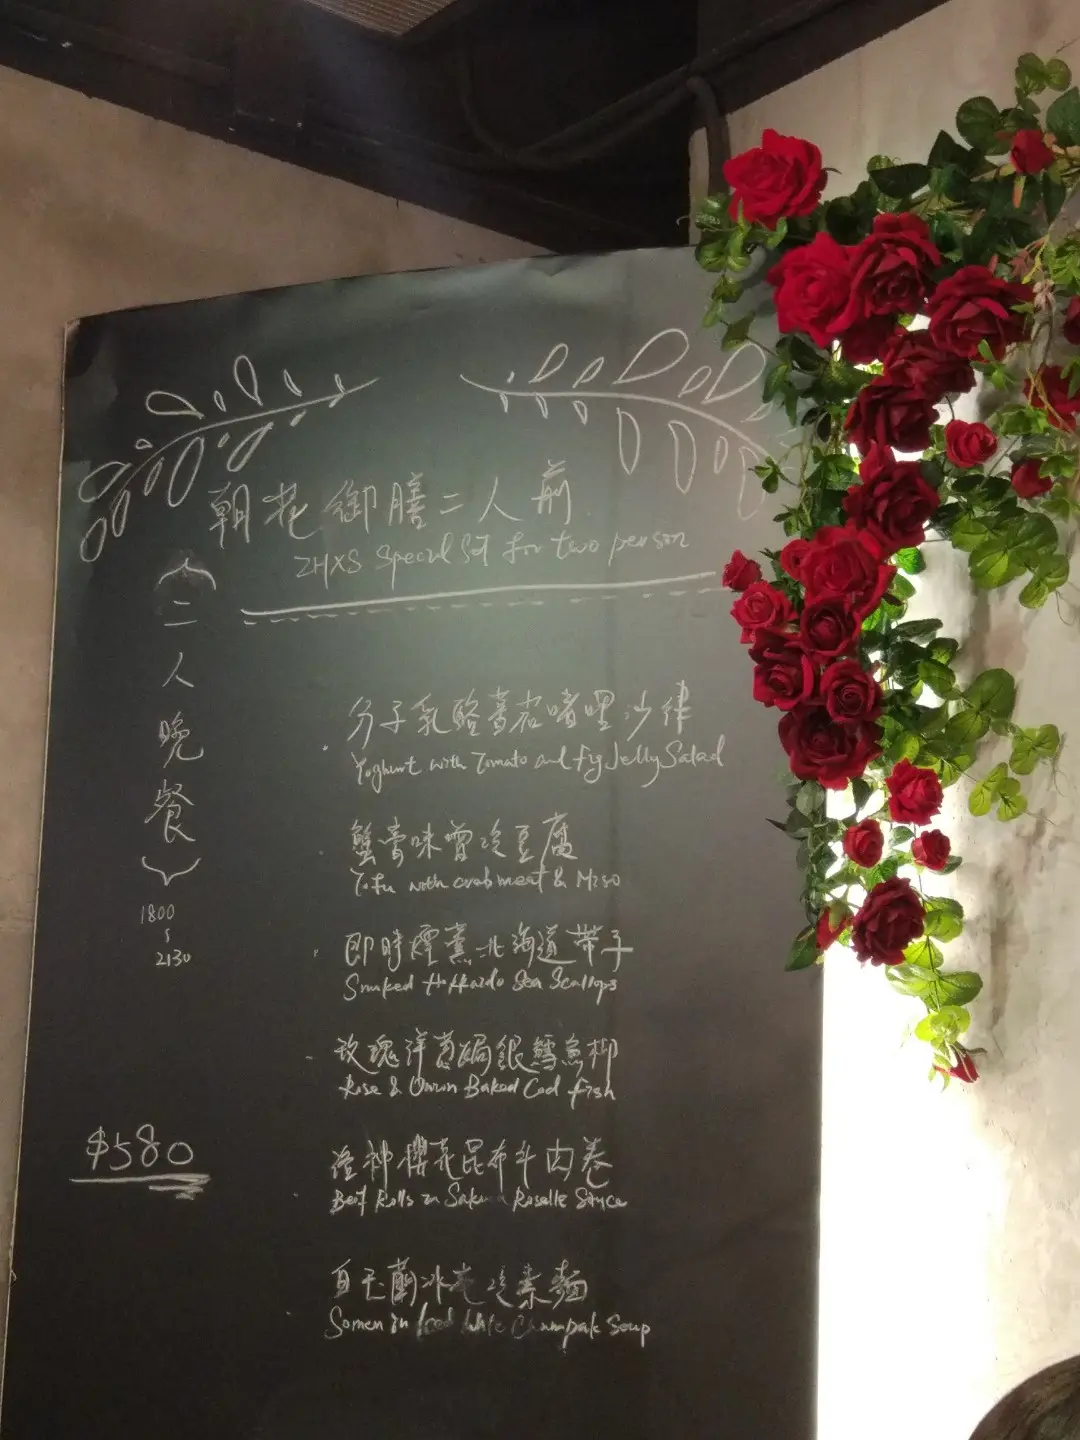 朝花御膳二人前
ZHXS Special Set for two person
二人晚餐
1800
2130
分子乳酪蕃茄啫喱沙律
Yoghurt with Tomato and Fig Jelly Salad
蟹膏味曾冷豆腐
Tofu with crab meat & Miso
即時煙熏北海道帶子
Smoked Hokkaido Sea Scallops
玫瑰洋葱焗銀鱈魚柳
Rose & Onion Baked Cod Fish
$580
神櫻花昆布牛肉卷
Beef Rolls in Sakura Roselle Sauce
白玉蘭冰花冷素麵
Somen in Iced White Champak Soup